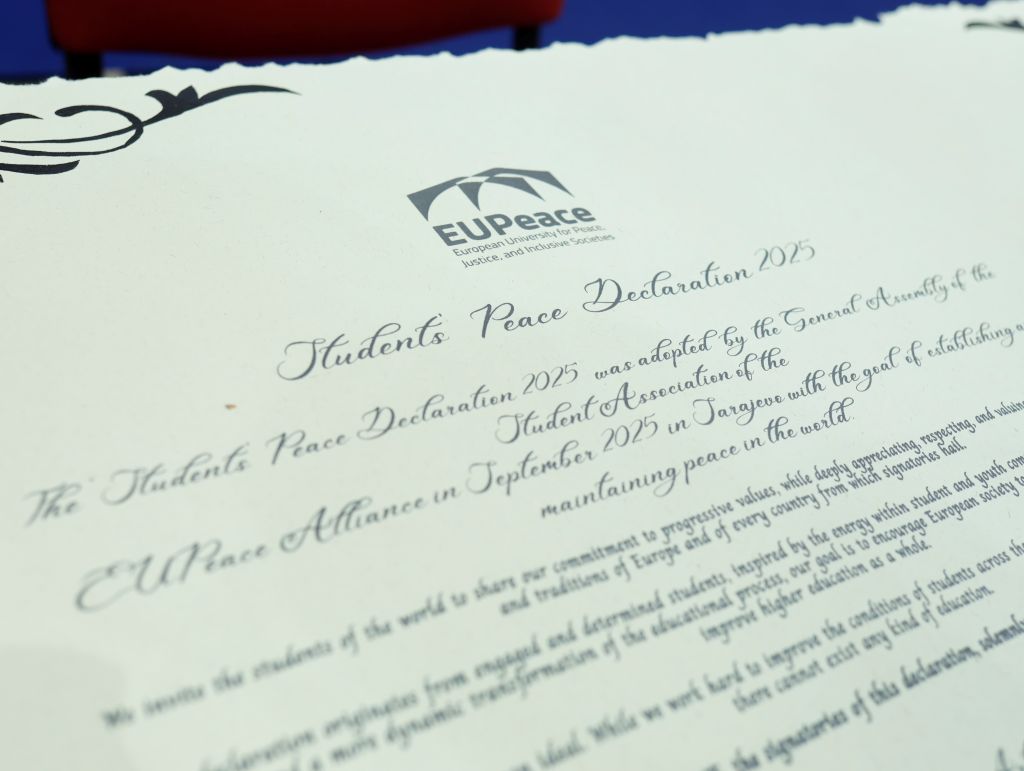 EUPeace
European University for Peace,
Justice, and Inclusive Societies
Students' Peace Declaration 2025
The Students' Peace Declaration 2025 was adopted by the General Assembly of the
Student Association of the
EUPeace Alliance in September 2025 in Sarajevo with the goal of establishing
maintaining peace in the world.
We invite the students of the world to share our commitment to progressive values, while deeply appreciating, respecting, and valuing
and traditions of Europe and of every country from which signatories hail.
originates from engaged and determined students, inspired by the energy within student and youth
a more dynamic transformation of the educational process, our goal is to encourage European society
improve higher education as a whole.
ideal. While we work hard to improve the conditions of students across
there cannot exist any kind of education.
the signatories of this declaration, solemnly